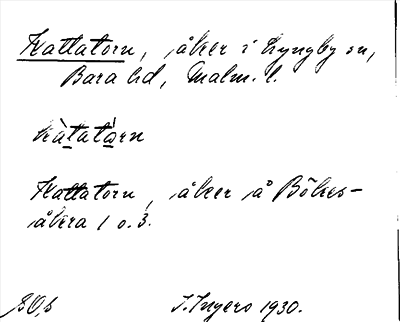 Kattatorn, åker i Lyngby sn,
Bara hd, Malm. l.
kàtatårn
Kattatorn, åker å Bökes-
åkra 1 o. 3.
I. Ingers 1930.